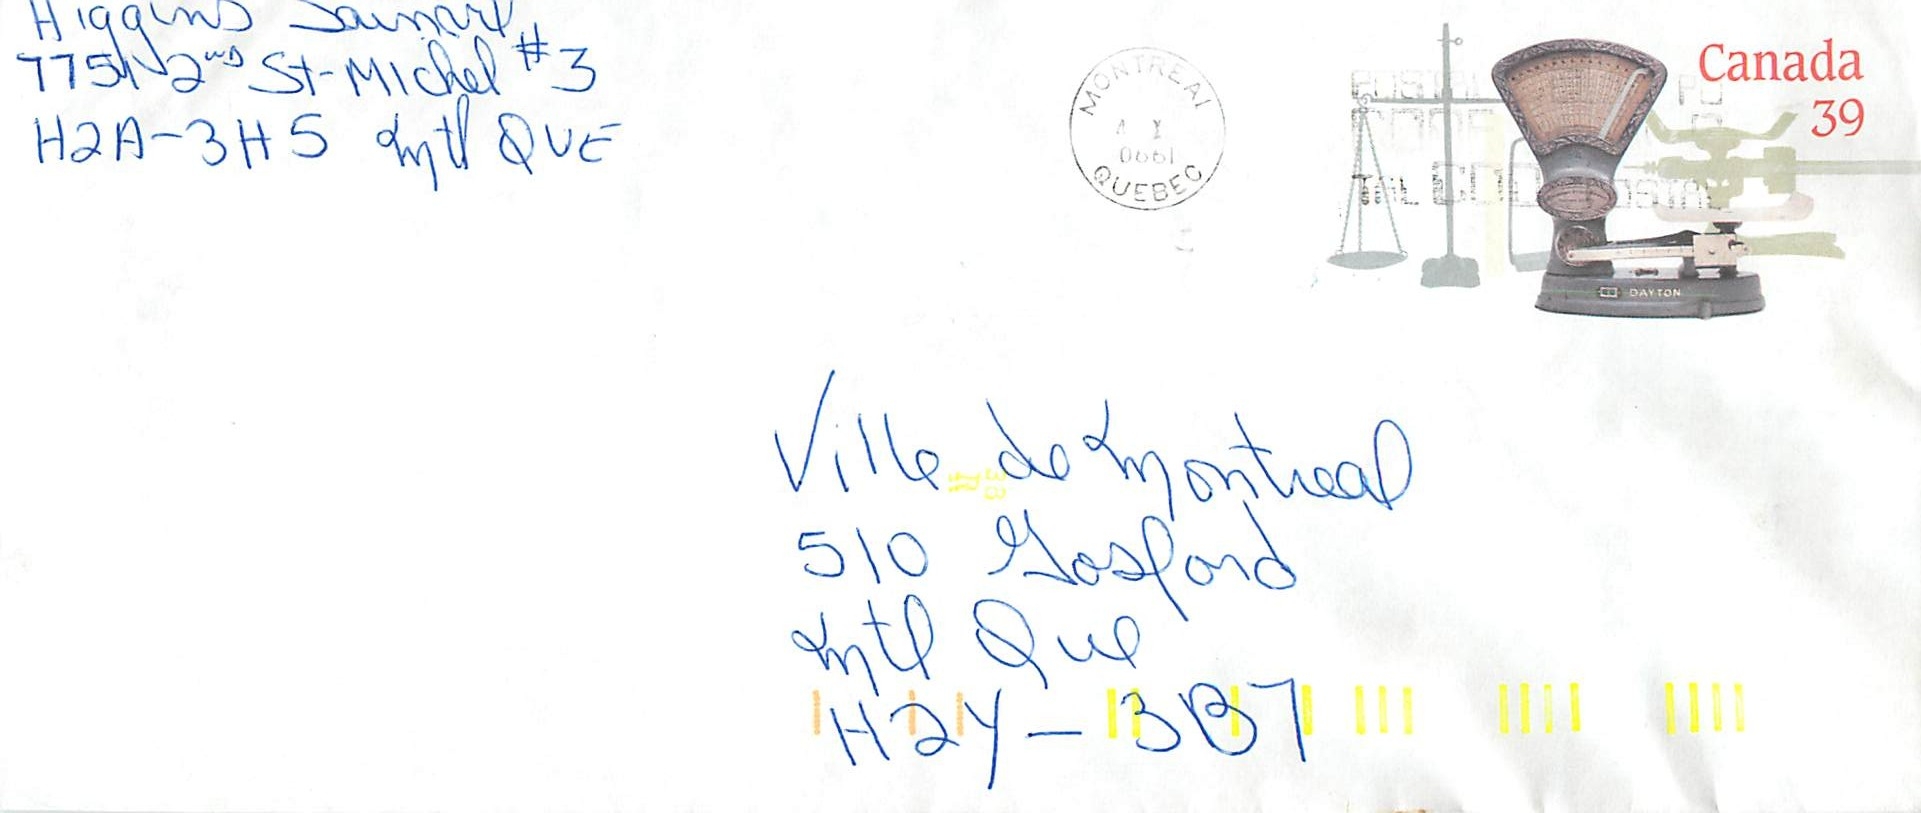 Higgins
7751 2ND St-Michel #3
H2A-3H5 Mtl QUE
MONTREAL
1990
QUEBEC
Canada
39
TAL CODE POSTAL
DAYTON
Ville de Montreal
510 Gosford
Mtl Que
H2Y-3B7